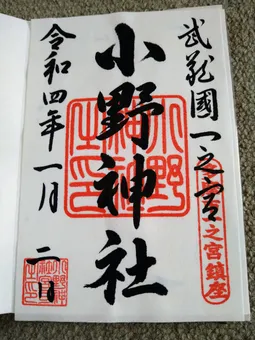 武蔵國一之宮
一之宮鎮座
小野神社
小野神社之印
令和四年一月二日